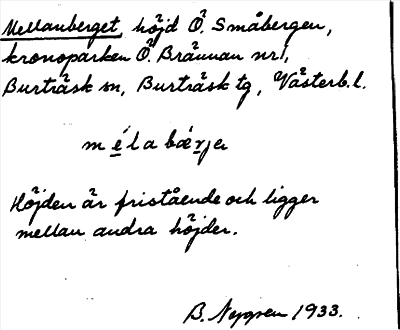 Mellanberget, höjd Ö. Småbergen,
kronoparken Ö. Brännan nr 1,
Burträsk sn, Burträsk tg, Västerb. l.
mélabǽrjer
Höjden är fristående och ligger
mellan andra höjder.
B. Nygren 1933.